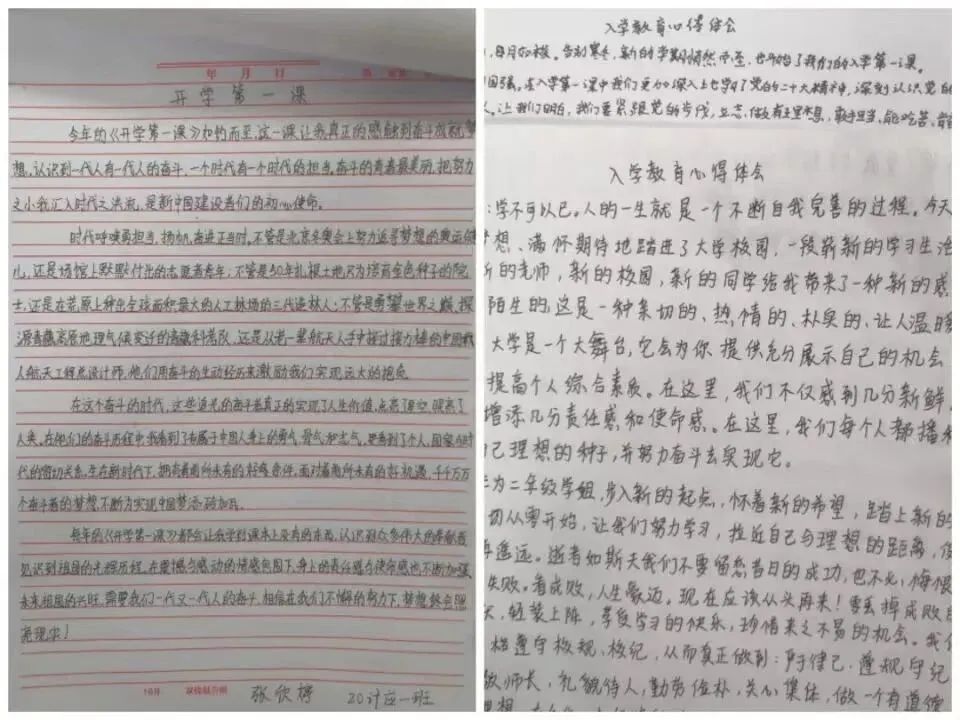 年 月 日
开学第一课
今年的《开学第一课》如约而至,这一课让我真正的感触到奋斗成就梦
想,认识到一代人有一代人的奋斗,一个时代有一个时代的担当,奋斗的青春最美丽,把努力
之小我汇入时代之洪流,是新中国建设者们的初心使命。
时代呼唤勇担当,扬帆奋进正当时。不管是北京冬奥会上努力追寻梦想的奥运健
儿,还是场馆上默默付出的志愿者青年;不管是50年扎根土地只为培育金色种子的院
士,还是在荒原上种出全球面积最大的人工林场的三代造林人;不管是勇攀世界之巅,探
源青藏高原地理气候变迁的青藏科考队,还是从老一辈航天人手中接过接力棒的中国载
人航天工程总设计师,他们用奋斗的生动经历来激励我们实现远大的抱负
在这个奋斗的时代,这些追光的奋斗者真正的实现了人生价值,点亮了星空,照亮了
人类,在他们的奋斗历程中,我看到了有属于中国人身上的勇气,骨气和志气,更看到了个人,国家和时
代的密切关系,生在新时代下,拥有着前所未有的好条件,面对着前所未有的好机遇,千千万万
个奋斗着的梦想,不断为实现中国梦添砖加瓦。
每年的《开学第一课》都会让我学到课本上没有的东西,认识到众多伟大的奉献者
见识到祖国的光辉历程,在震撼与感动的情感包围下,身上的责任感与使命感也不断加强,
未来祖国的兴旺,需要我们一代又一代人的奋斗,相信在我们不懈的努力下,梦想终会照
亮现实!
张欣 20计应一班
入学教育心得体会
,日月如梭。告别寒冬,新的学期悄然而至,也开始了我们的入学第一课。
国强。在入学第一课中我们更加深入上学习了党的二十大精神,深刻认识党的
,让我们明白,我们要紧跟党的步伐,立志,做有主理想,敢于担当,能吃苦,肯奋
入学教育心得体会
:学不可以已。人的一生就是一个不断自我完善的过程。今天
梦想、满怀期待地踏进了大学校园,一段崭新的学习生活
新的老师,新的校园,新的同学给我带来了一种新的感
陌生的,这是一种亲切的、热情的、朴实的、让人温暖
大学是一个大舞台,它会为你提供充分展示自己的机会
提高个人综合素质。在这里,我们不仅感到几分新鲜,
增添几分责任感和使命感。在这里,我们每个人都播种
己理想的种子,并努力奋斗去实现它。
作为二年级学姐,步入新的起点,怀着新的希望,踏上新的
切从零开始,让我们努力学习,拉近自己与理想的距离,使
再遥远。逝者如斯夫我们不要留恋昔日的成功,也不必悔恨
失败。看成败,人生豪迈。现在应该从头再来!要丢掉成败
,轻装上阵,享受学习的快乐,珍惜来之不易的机会。我们
格遵守校规、校纪,从而真正做到:严于律己、遵规守纪
敬师长,礼貌待人,勤劳俭朴,关心集体,做一个有道德